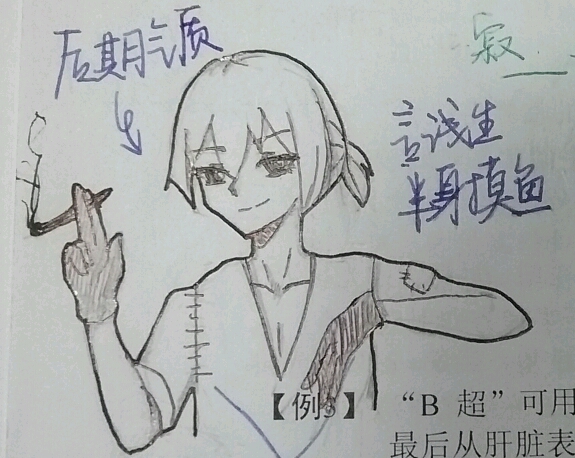 后期气质
寂
言浅生
半身摸鱼
【例3】 “B 超”可用
最后从肝脏表